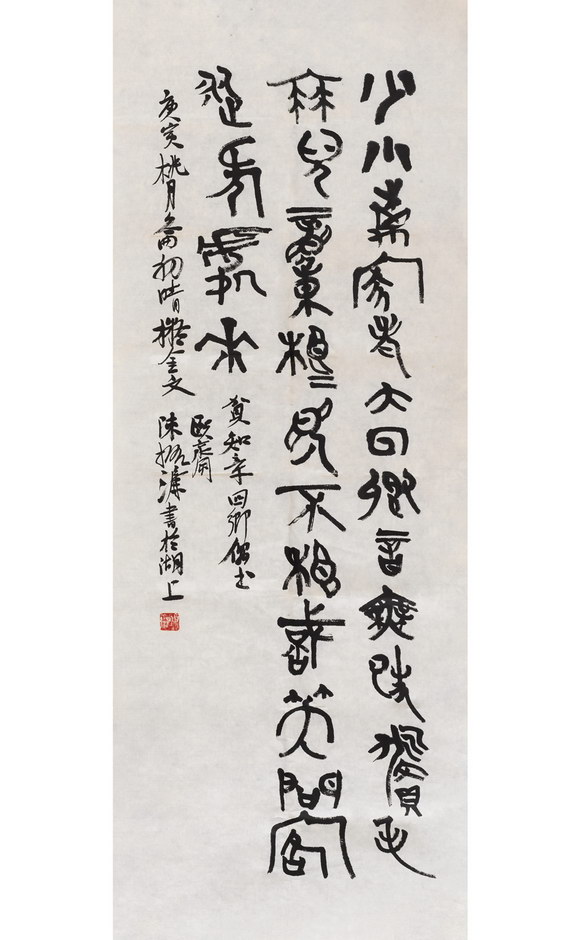 少小離家老大回鄉音無改鬢毛
衰兒童相見不相識笑問客
從何處來
賀知章回鄉偶書
庚寅桃月初晴擬金文 陳振濂書於湖上